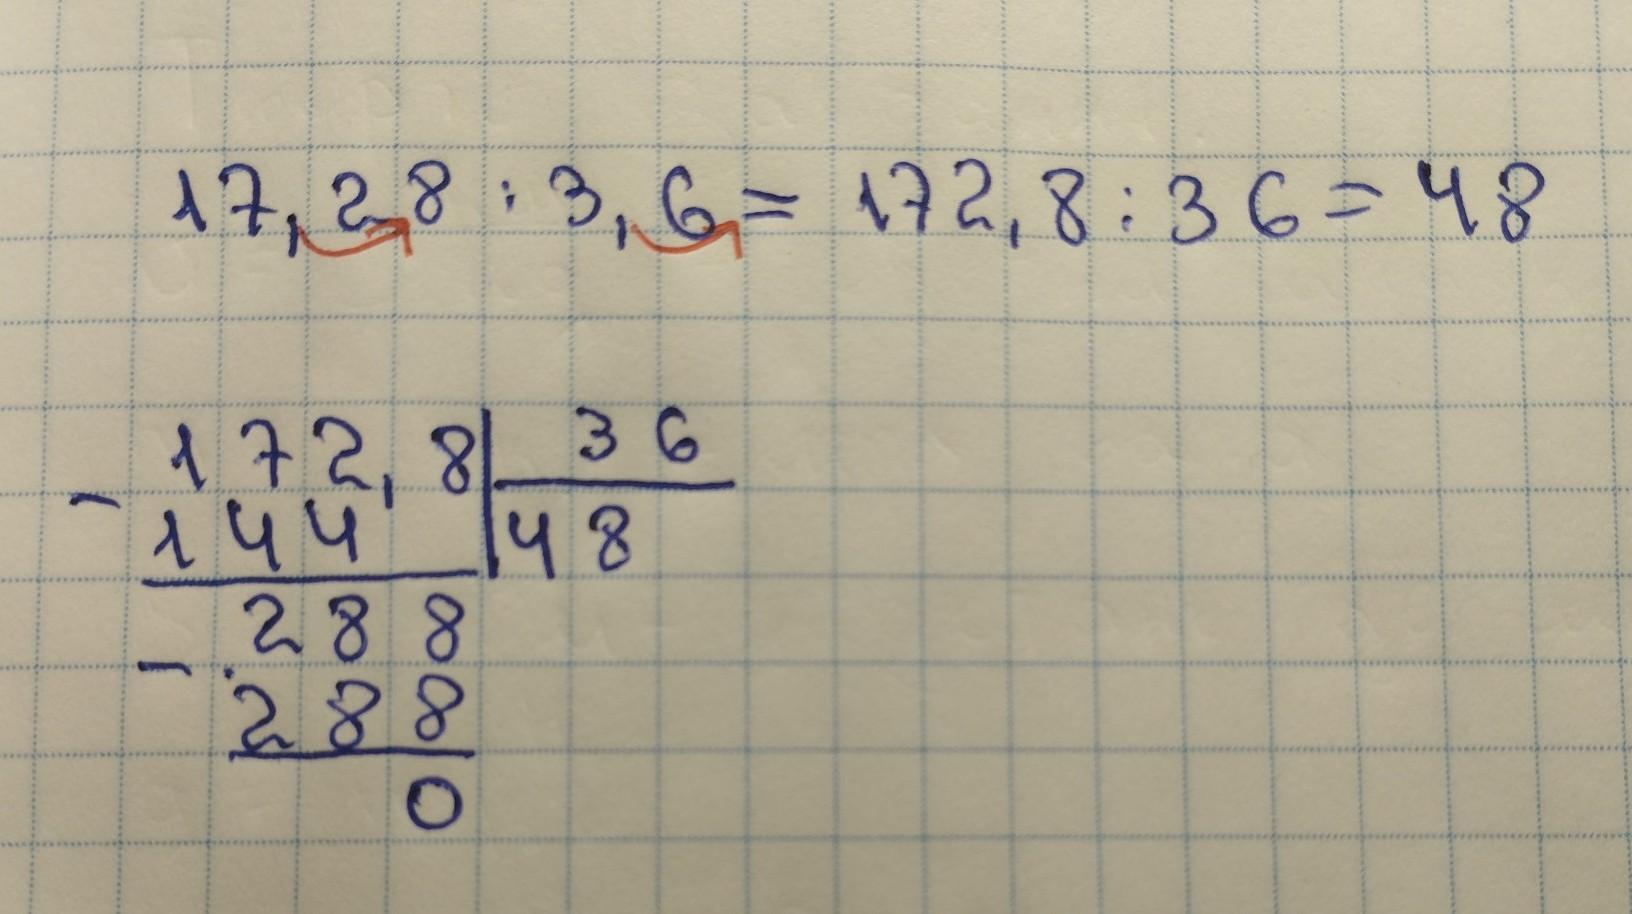 17,28 : 3,6 = 172,8 : 36 = 48
172,8 36
- 144 48
288
- 288
0